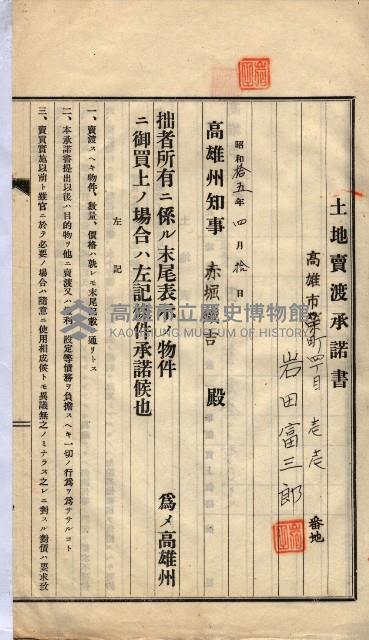 土地賣渡承諾書
高雄市榮町四丁目壱壱番地
岩田富三郎
昭和拾五年四月拾日
高雄州知事 赤堀 吉 殿
為メ高雄州
拙者所有ニ係ル末尾表示ノ物件
ニ御買上ノ場合ハ左記條件承諾候也
左記
一、賣渡スヘキ物件、數量、價格ハ孰レモ末尾記載ノ通リトス
二、本承諾書提出以後ハ目的物ヲ他ニ賣渡又ハ權利ノ設定等債務ヲ負擔スヘキ一切ノ行為ヲ為ササルコト
三、賣買實施以前ト雖官ニ於テ必要ノ場合ハ隨意ニ使用相成候トモ異議無之ノミナラス之レニ對スル對價ハ要求致
高雄市立歷史博物館
KAOHSIUNG MUSEUM OF HISTORY